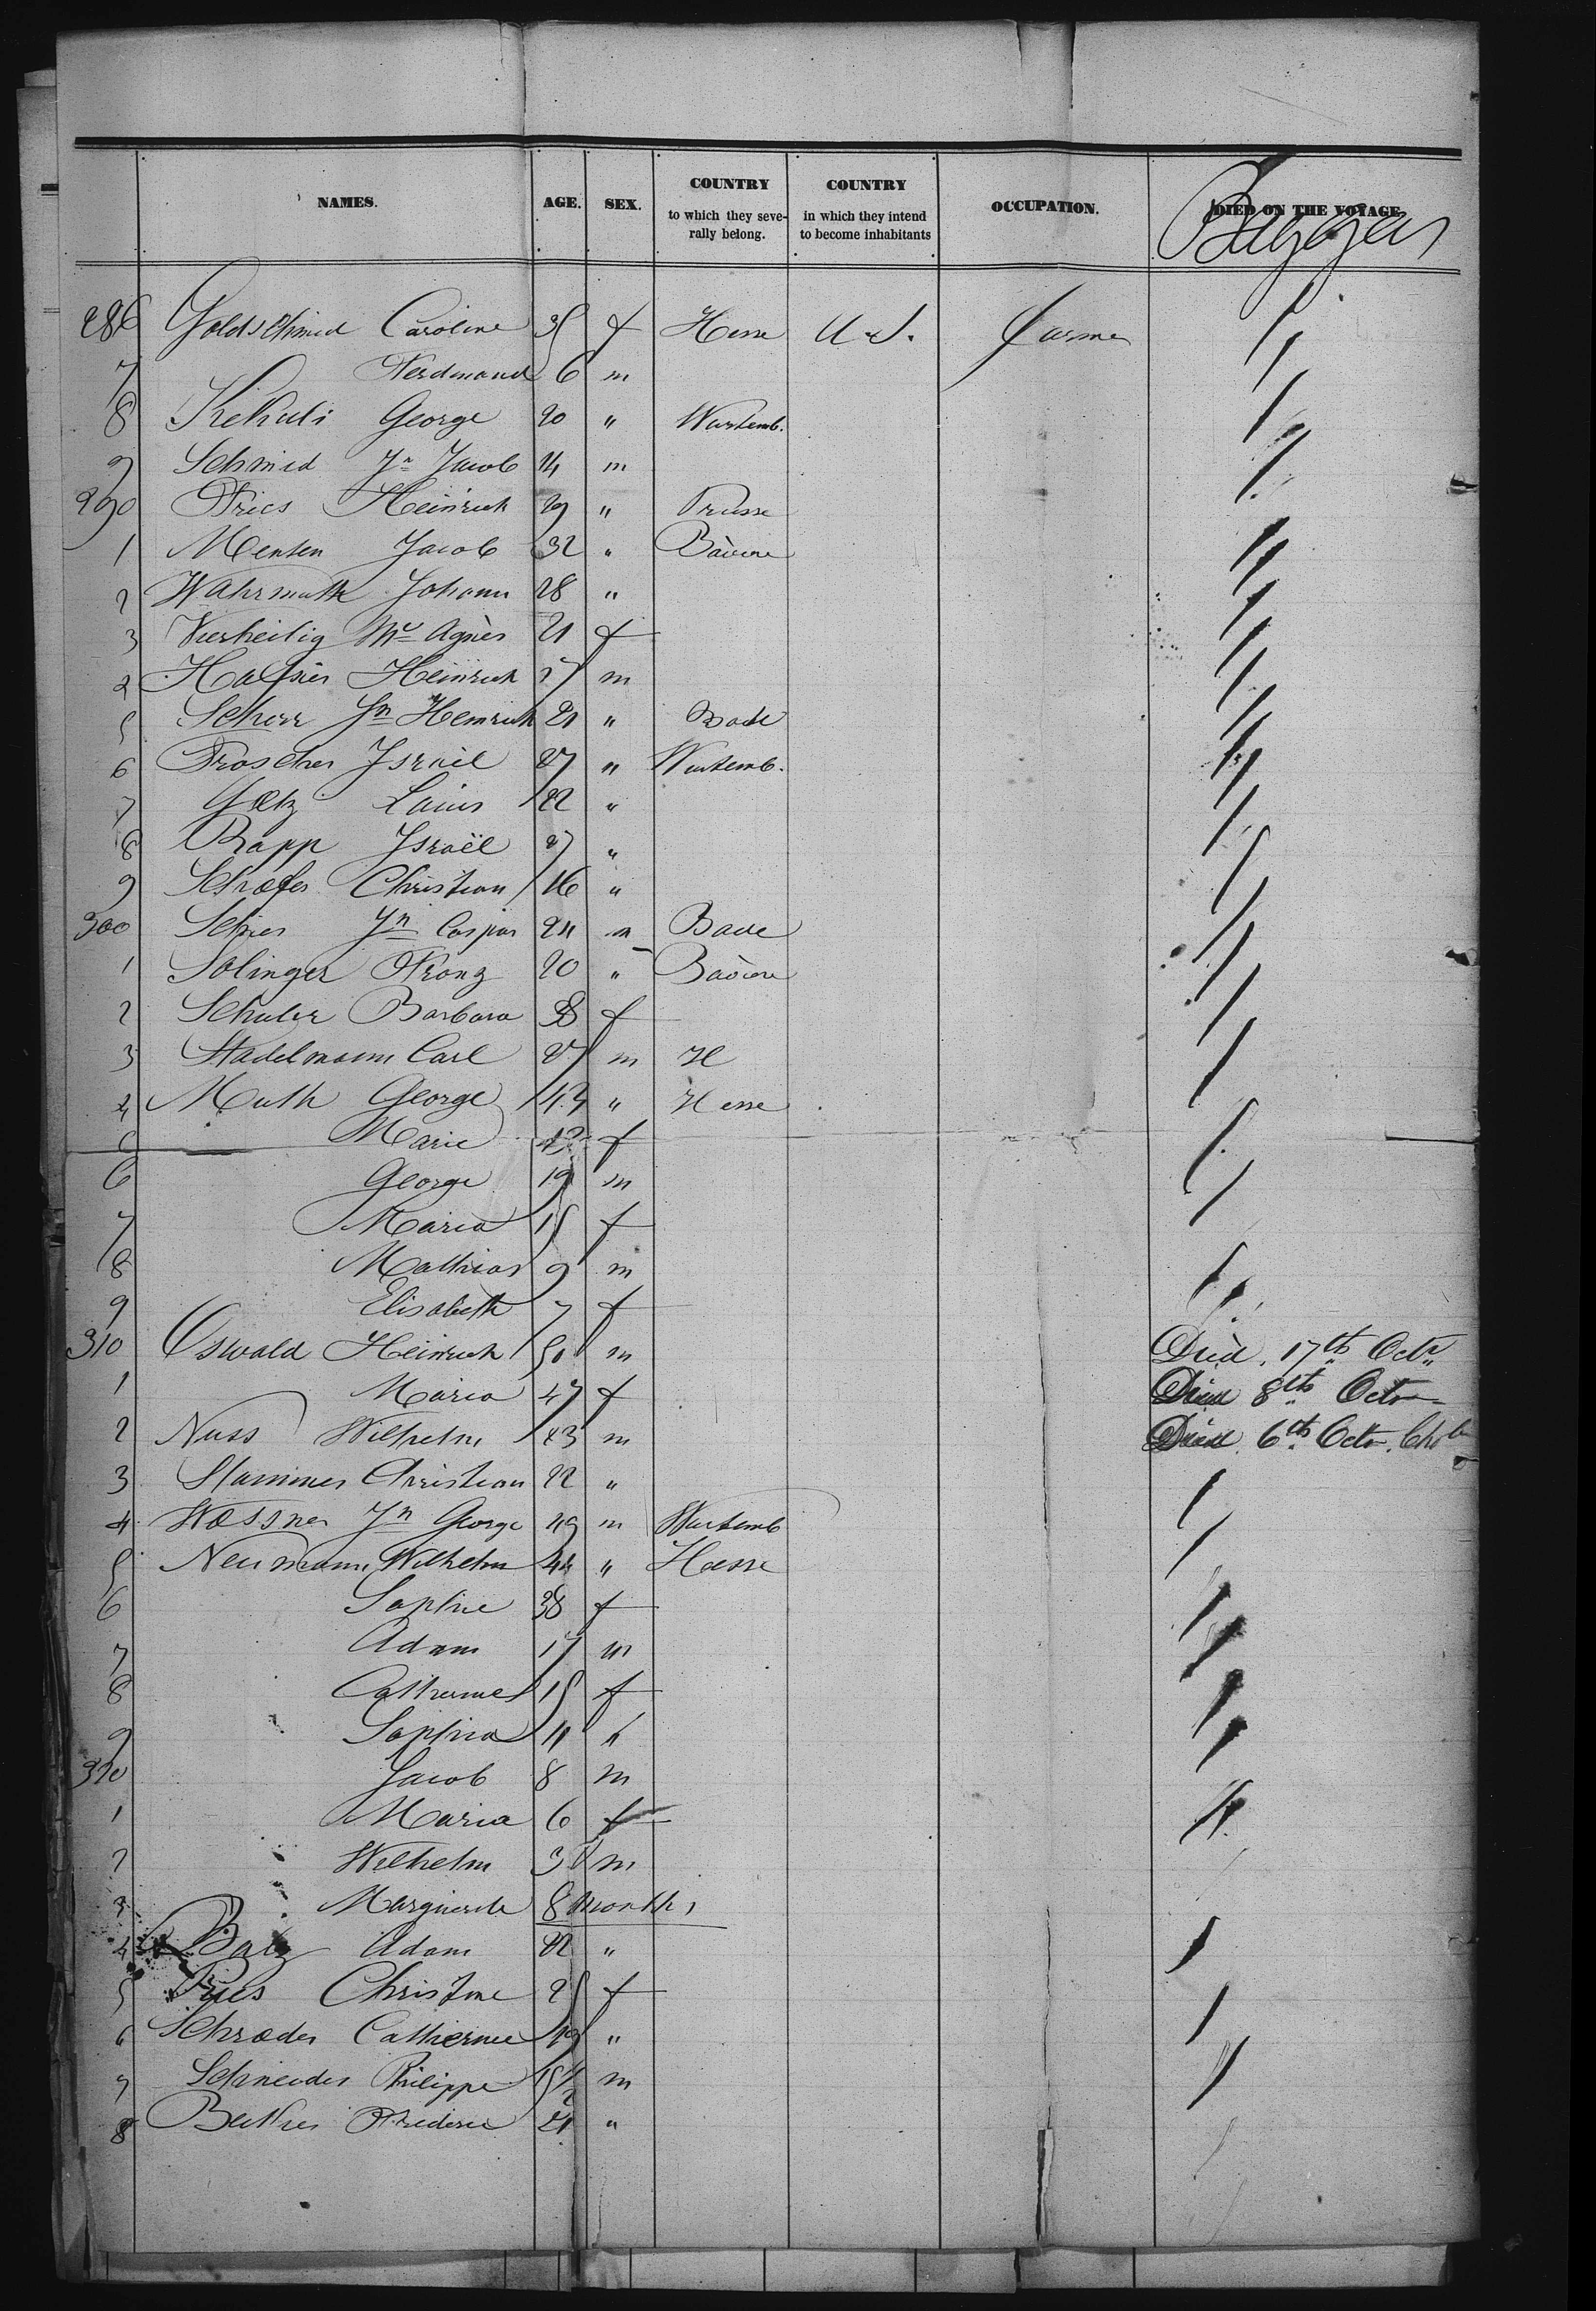 NAMES. AGE. SEX. COUNTRY to which they seve- rally belong. COUNTRY in which they intend to become inhabitants OCCUPATION. DIED ON THE VOYAGE.
Baggages
286 Goldschmid Caroline 35 f Hesse U.S. farmer
7 Ferdinand 6 m
8 George 20 " Wurtemb.
9 Schmid Jn Jacob 14 m
290 Fries Heinrich 29 " Prusse
1 Menten Jacob 32 " Bavière
2 Wahrmuth Johann 28 "
3 Vierheilig Me Agnès 21 f
4 Heinrich 27 m
5 Scherr Jn Heinrich 21 " Bade
6 Froscher Israël 27 " Wurtemb.
7 Gœtz Louis 22 "
8 Rapp Israël 27 "
9 Schæfer Christian 16 "
300 Jn Caspar 24 m Bade
1 Solinger Franz 20 " Bavière
2 Schuler Barbara 38 f
3 Stadelmann Carl 27 m H
4 Muth George 43 " Hesse
5 Marie f
6 George 19 m
7 Maria 15 f
8 Mathias 9 m
9 Elisabeth 7 f
310 Oswald Heinrich 50 m Died. 17th Octr
1 Maria 47 f Died 8th Octr
2 Nuss Wilhelm 43 m Died. 6th Octr.
3 Stammer Christian 22 "
4 Wœssner Jn George 49 m Wurtemb
5 Neumann Wilhelm 44 " Hesse
6 Sophie 38 f
7 Adam 17 m
8 Catherine 15 f
9 Sophia 11 "
320 Jacob 8 m
1 Maria 6 f
2 Wilhelm 3 m
3 Marguerite 8 months
4 Balz Adam 22 "
5 Christine 25 f
6 Schrœder Catherine 19 "
7 Schneider Philippe m
8 21 "